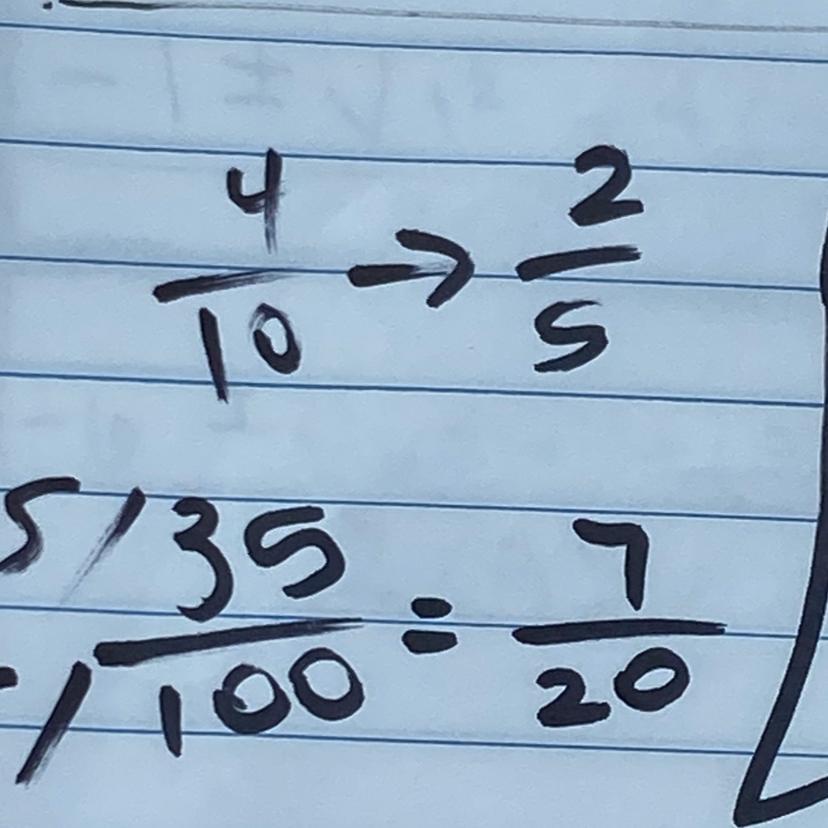 4/10 → 2/5
5/ 35/100 = 7/20